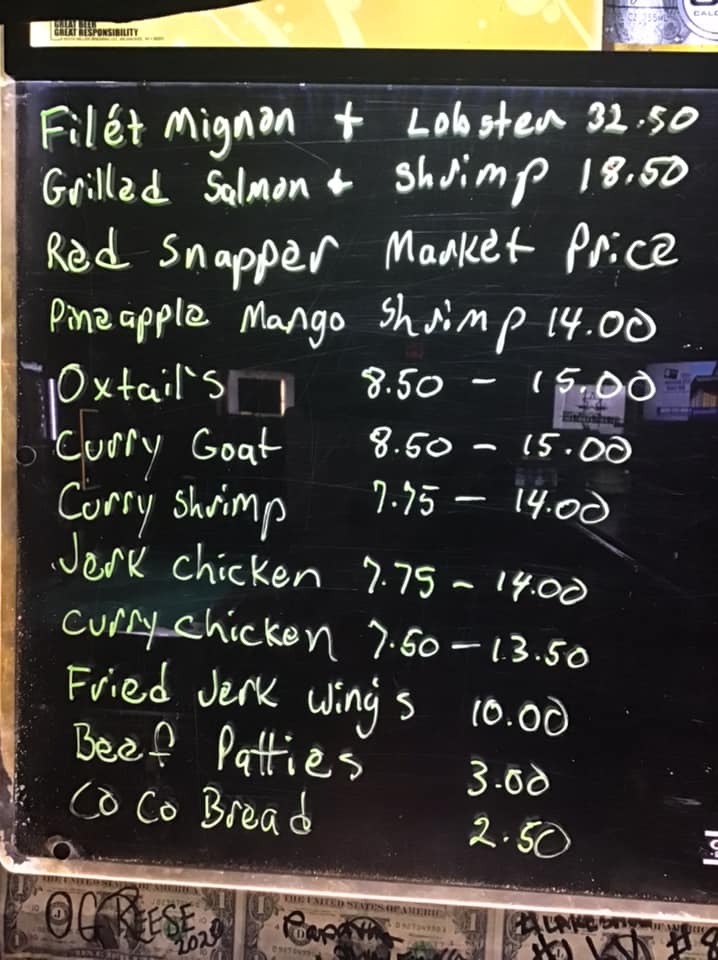 GREAT BEER
GREAT RESPONSIBILITY
CALO
Filét Mignon + Lobster 32.50
Grilled Salmon + Shrimp 18.50
Red Snapper Market Price
Pineapple Mango Shrimp 14.00
Oxtail's 8.50 - 15.00
Curry Goat 8.50 - 15.00
Curry Shrimp 7.75 - 14.00
Jerk Chicken 7.75 - 14.00
Curry Chicken 7.50 - 13.50
Fried Jerk Wing's 10.00
Beef Patties 3.00
Co Co Bread 2.50
THE UNITED STATES OF AMERICA
OG REESE
2020